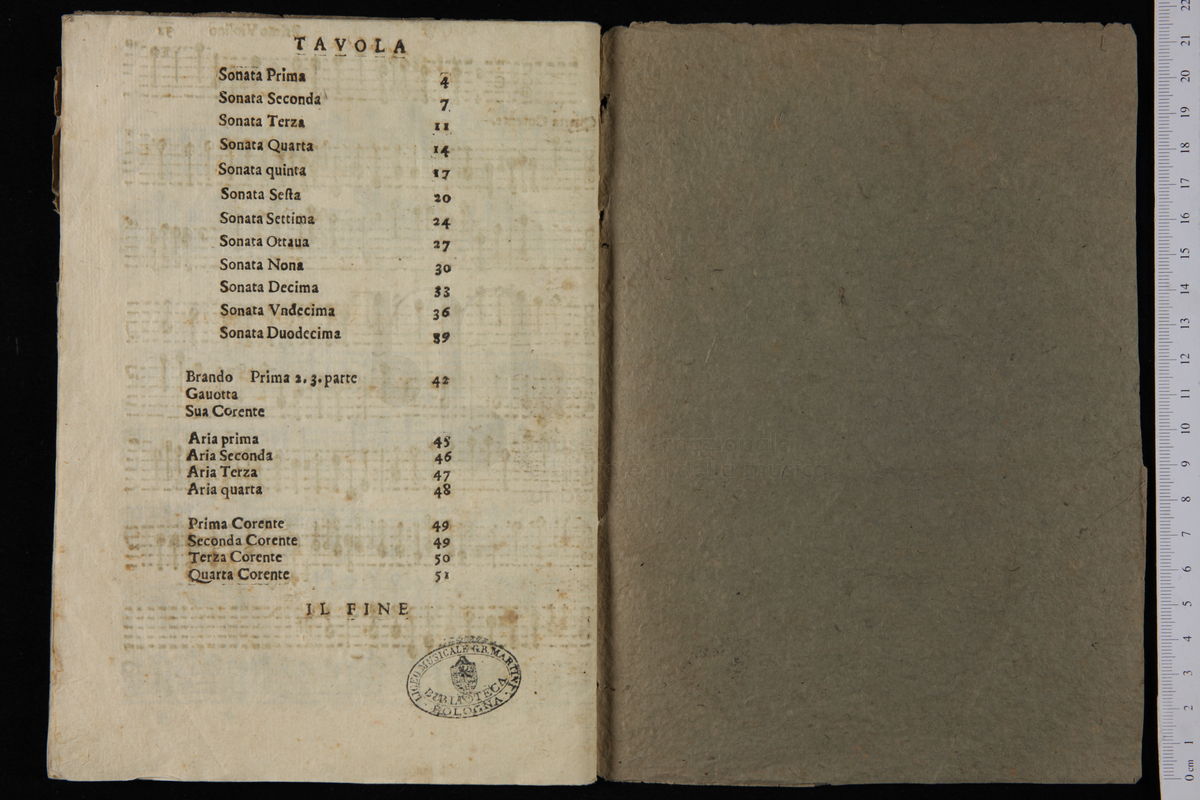 TAVOLA
Sonata Prima 4
Sonata Seconda 7
Sonata Terza 11
Sonata Quarta 14
Sonata quinta 17
Sonata Seſta 20
Sonata Settima 24
Sonata Ottaua 27
Sonata Nona 30
Sonata Decima 33
Sonata Vndecima 36
Sonata Duodecima 39
Brando Prima 2. 3. parte 42
Gauotta
Sua Corente
Aria prima 45
Aria Seconda 46
Aria Terza 47
Aria quarta 48
Prima Corente 49
Seconda Corente 49
Terza Corente 50
Quarta Corente 51
IL FINE
LICEO MUSICALE G.B. MARTINI
BIBLIOTECA
BOLOGNA
0 cm 1 2 3 4 5 6 7 8 9 10 11 12 13 14 15 16 17 18 19 20 21 22